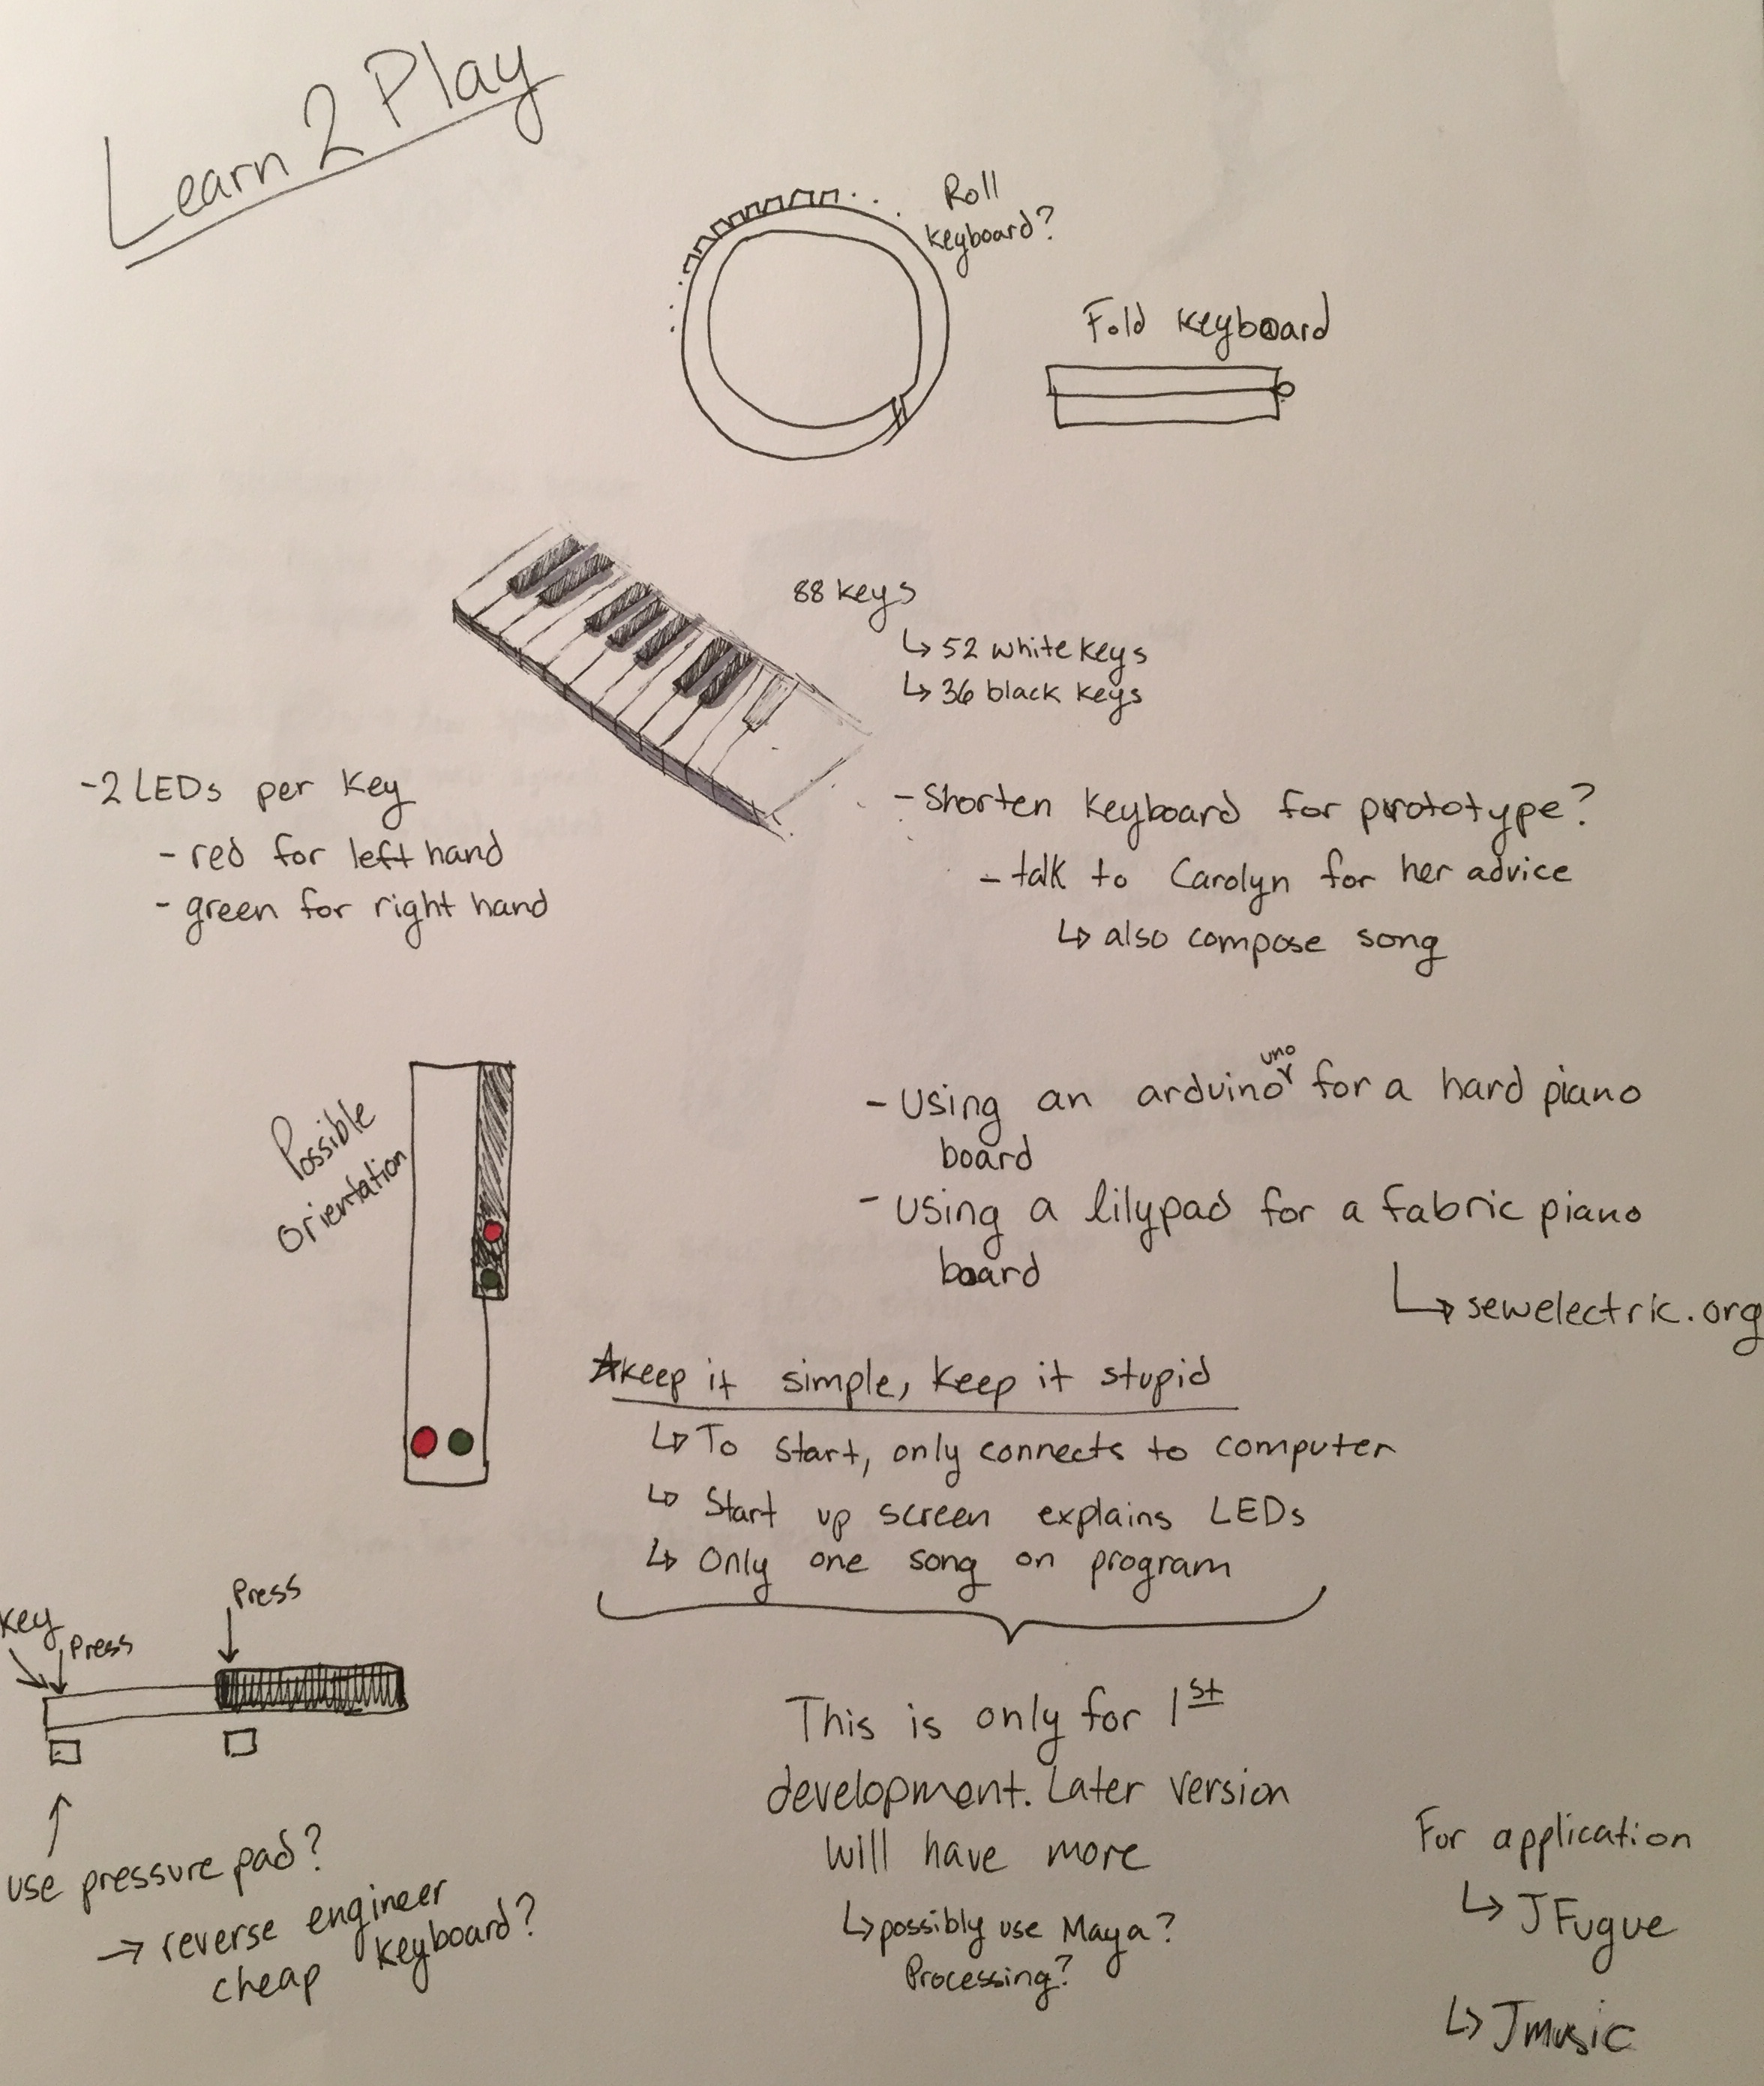 Learn 2 Play
Roll
keyboard?
Fold keyboard
88 keys
↳ 52 white keys
↳ 36 black keys
- 2 LEDs per key
- red for left hand
- green for right hand
- Shorten keyboard for prototype?
- talk to Carolyn for her advice
↳ also compose song
Possible
orientation
- Using an arduino uno for a hard piano
board
- Using a lilypad for a fabric piano
board
↳ sewelectric.org
☆keep it simple, keep it stupid
↳ To start, only connects to computer
↳ Start up screen explains LEDs
↳ Only one song on program
Press
Key
Press
This is only for 1st
development. Later version
will have more
↳ possibly use Maya?
Processing?
use pressure pad?
→ reverse engineer
cheap keyboard?
For application
↳ JFugue
↳ Jmusic